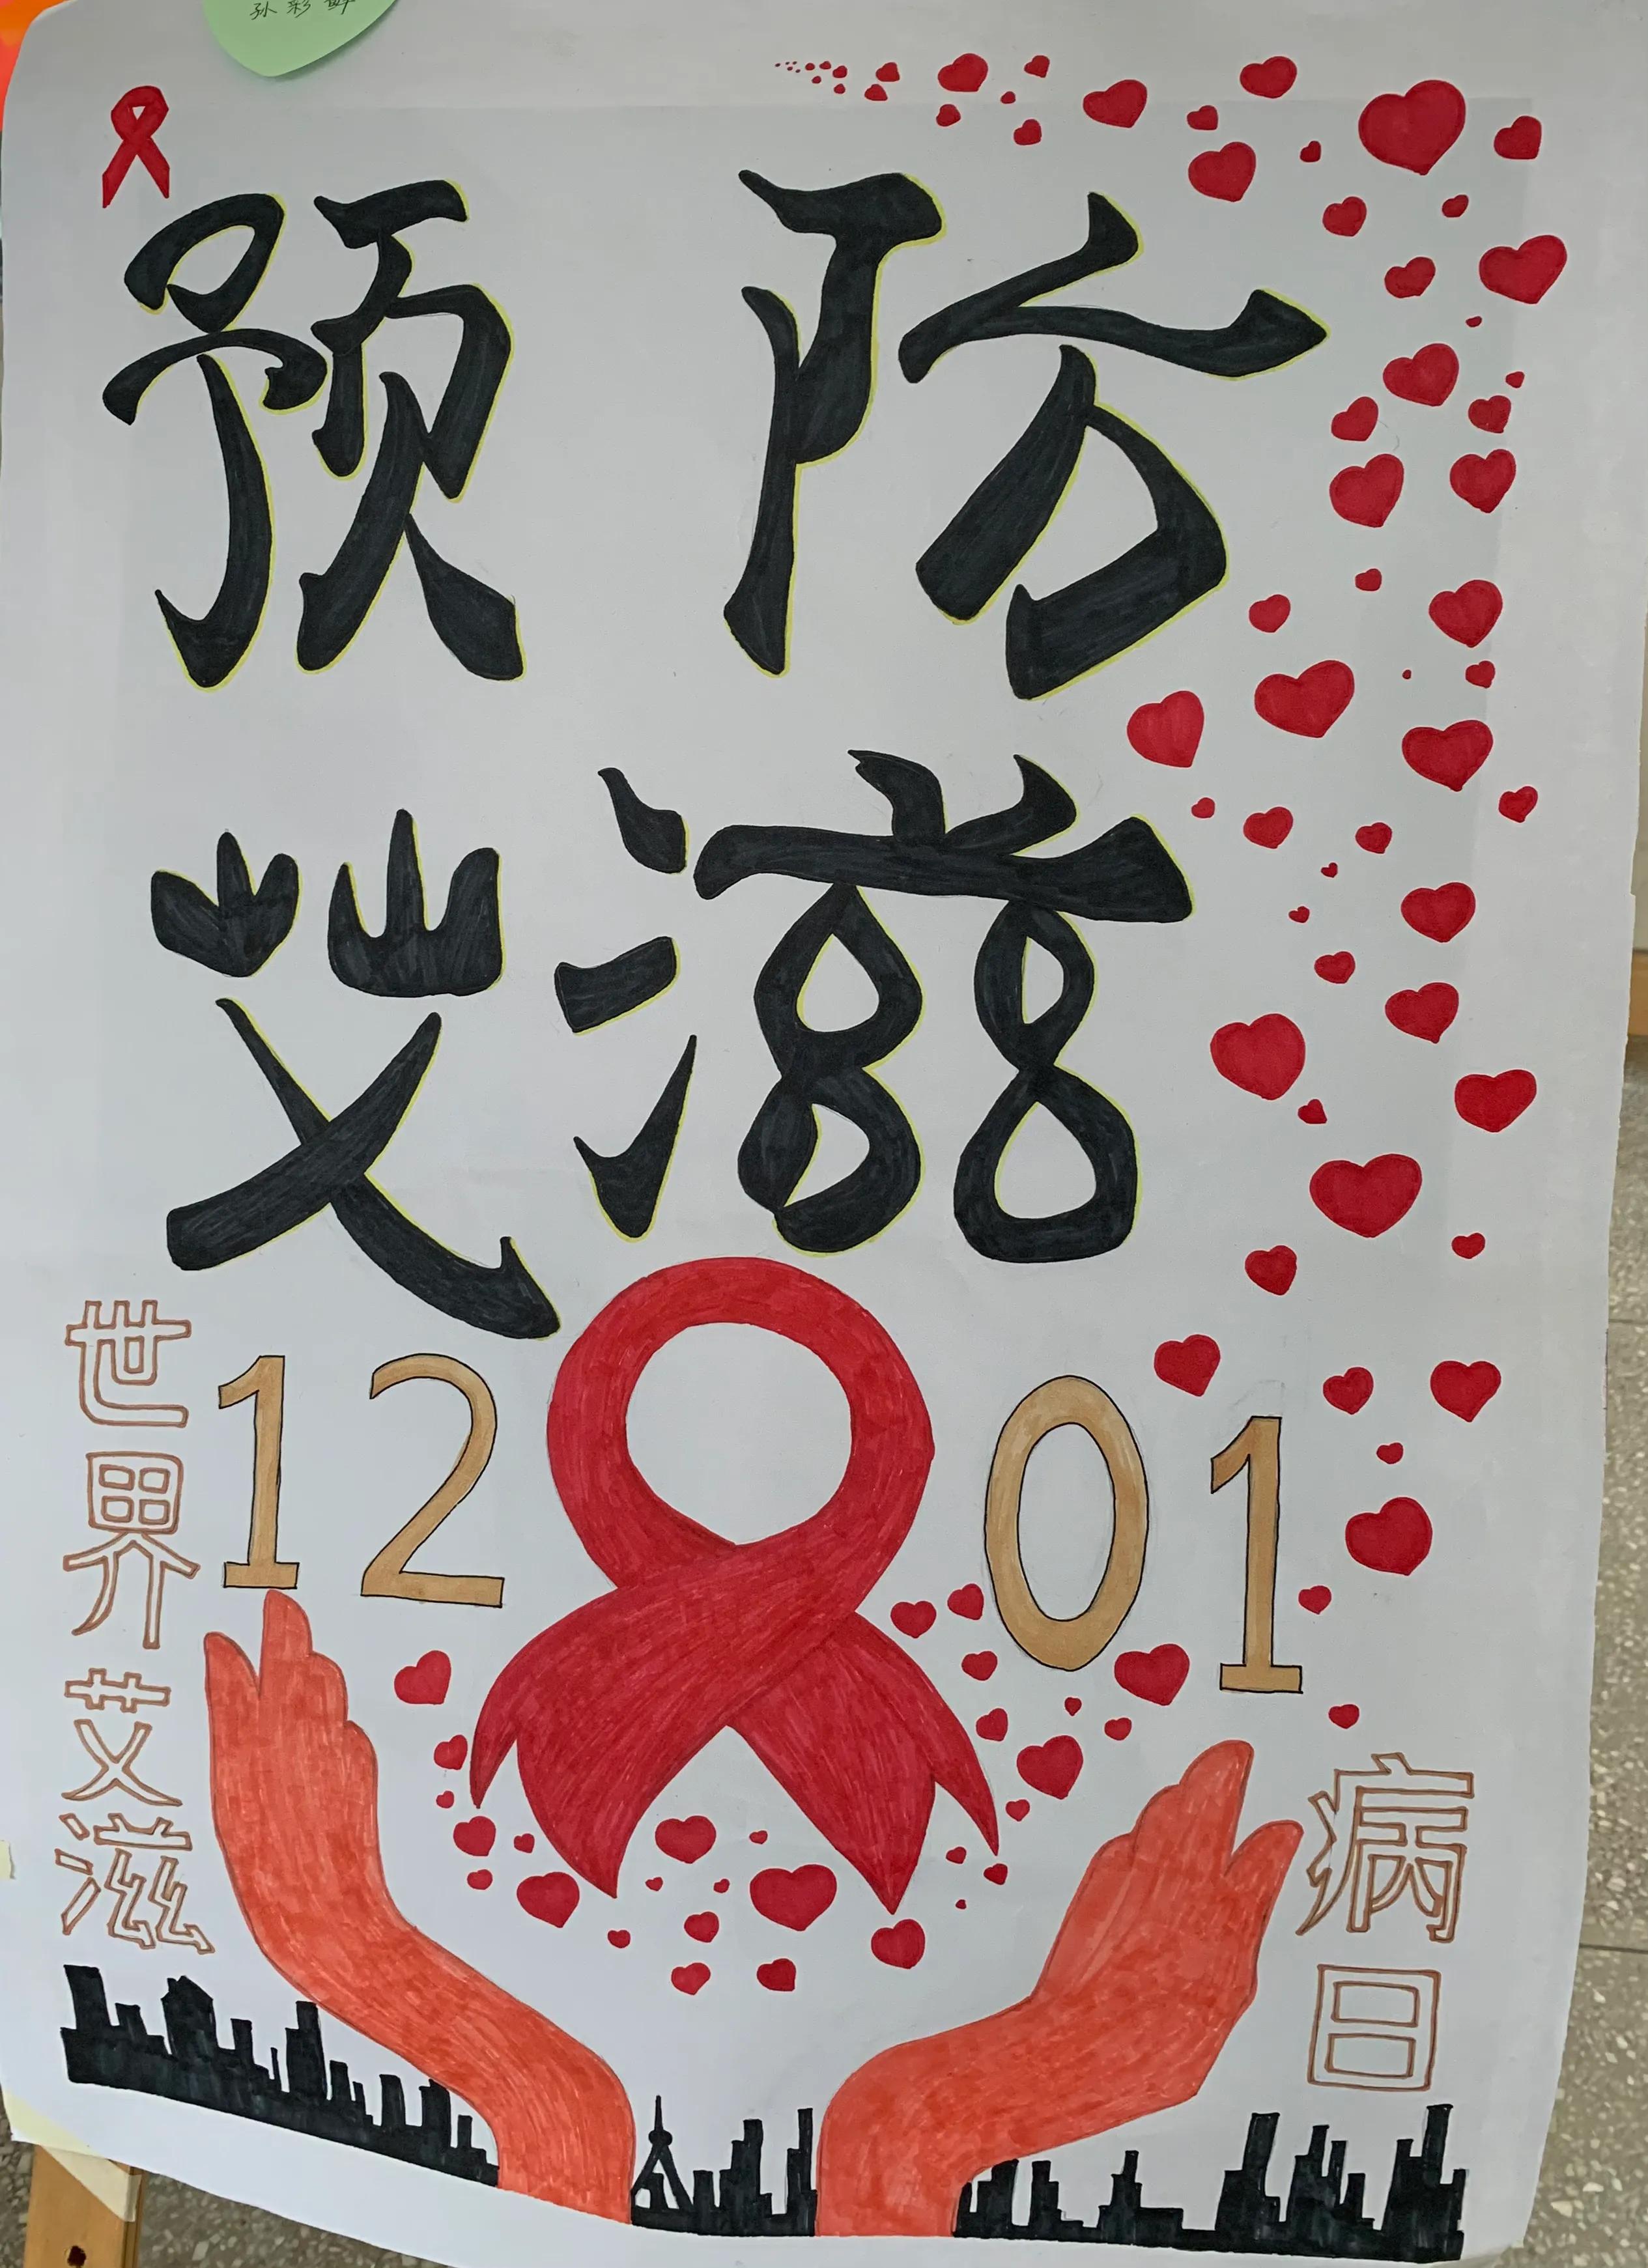 预防
艾滋
世界艾滋
12 01
病日